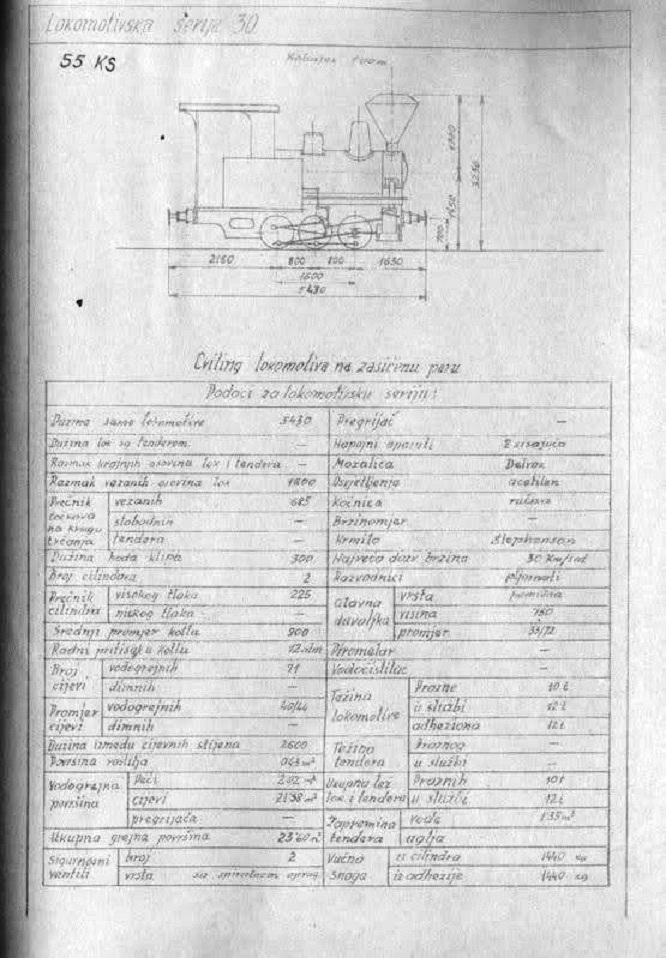 Lokomotivska serija 30
55 KS
3250
1450
700
2180 800 800 1650
1600
5430
Cviling lokomotiva na zasićenu paru
Podaci za lokomotivsku seriju:
Dužina same lokomotive 5430
Dužina lok sa tenderom —
Razmak krajnjih osovina lok i tendera —
Razmak vezanih osovina lok 1600
Prečnik točkova na krugu trčanja
vezanih 685
slobodnih —
tendera —
Dužina hoda klipa 300
Broj cilindara 2
Prečnik cilindra
visokog tlaka 225
niskog tlaka —
Srednji promjer kotla 900
Radni pritisak u kotlu 12 atm
Broj cijevi
vodogrejnih 71
dimnih —
Promjer cijevi
vodogrejnih 40/44
dimnih —
Dužina između cijevnih stijena 2600
Površina roštilja
Vodogrejna površina
peći
cijevi
pregrijača —
Ukupna grejna površina
Sigurnosni ventili
broj 2
vrsta sa spiralnom oprug
Pregrijač —
Napojni aparati
Mazalica Delvak
Osvjetljenje acetilen
Kočnica ručna
Brzinomjer —
Krmilo Stephenson
Najveća dozv brzina 30 Km/sat
Razvodnici pljosnati
Glavna duvaljka
vrsta
visina 780
promjer 55/72
Pirometar —
Vodočistilac —
Težina lokomotive
prazne 10 t
u službi 12 t
adheziona 12 t
Težina tendera
praznog —
u službi —
Ukupna tež lok i tendera
praznih 10 t
u službi 12 t
Zapremina tendera
vode 1.35 m³
uglja
Vučna Snaga
iz cilindra 1440 kg
iz adhezije 1440 kg